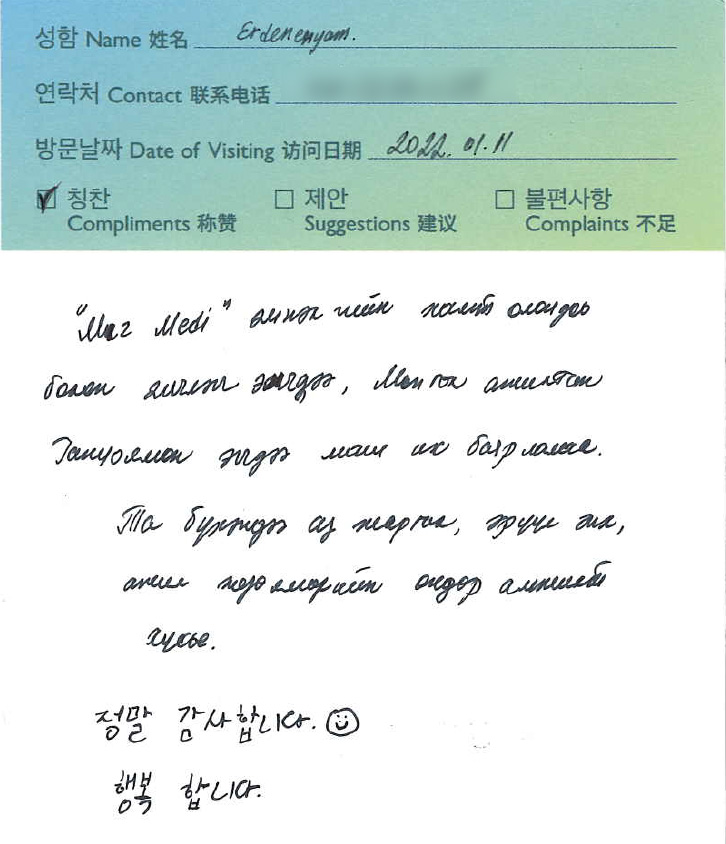 성함 Name 姓名 Erdenenyam.
연락처 Contact 联系电话
방문날짜 Date of Visiting 访问日期 2022.01.11
칭찬 제안 불편사항
Compliments 称赞 Suggestions 建议 Complaints 不足
"Маг Medi" эмнэлгийн хамт олондоо
болон эгчдээ, Монгол ажилтан
эгчдээ маш их баярлалаа.
Та бүхэндээ аз жаргал, эрүүл энх,
ажил хөдөлмөрийн өндөр амжилт
хүсье.
정말 감사합니다.
행복 합니다.